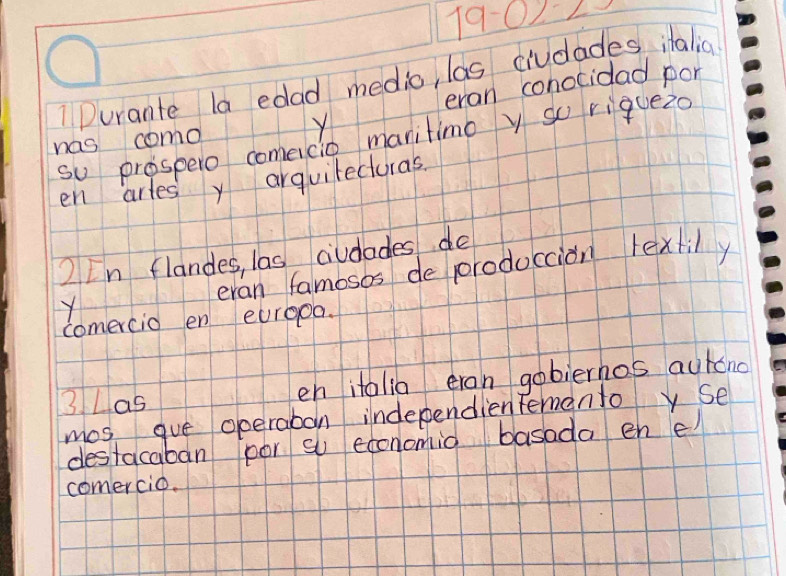 19-02-2
1 Durante la edad media, las ciudades italia
nas como y eran conocidad por
su prospero comercio maritimo y su riqueza
en artes y arquitecturas.
2 En flandes, las ciudades de
y eran famosos de producción textil y
comercio en europa.
3. Las en italia eran gobiernos autóno
mos que operaban independientemento y se
destacaban por su economia basada en el
comercio.